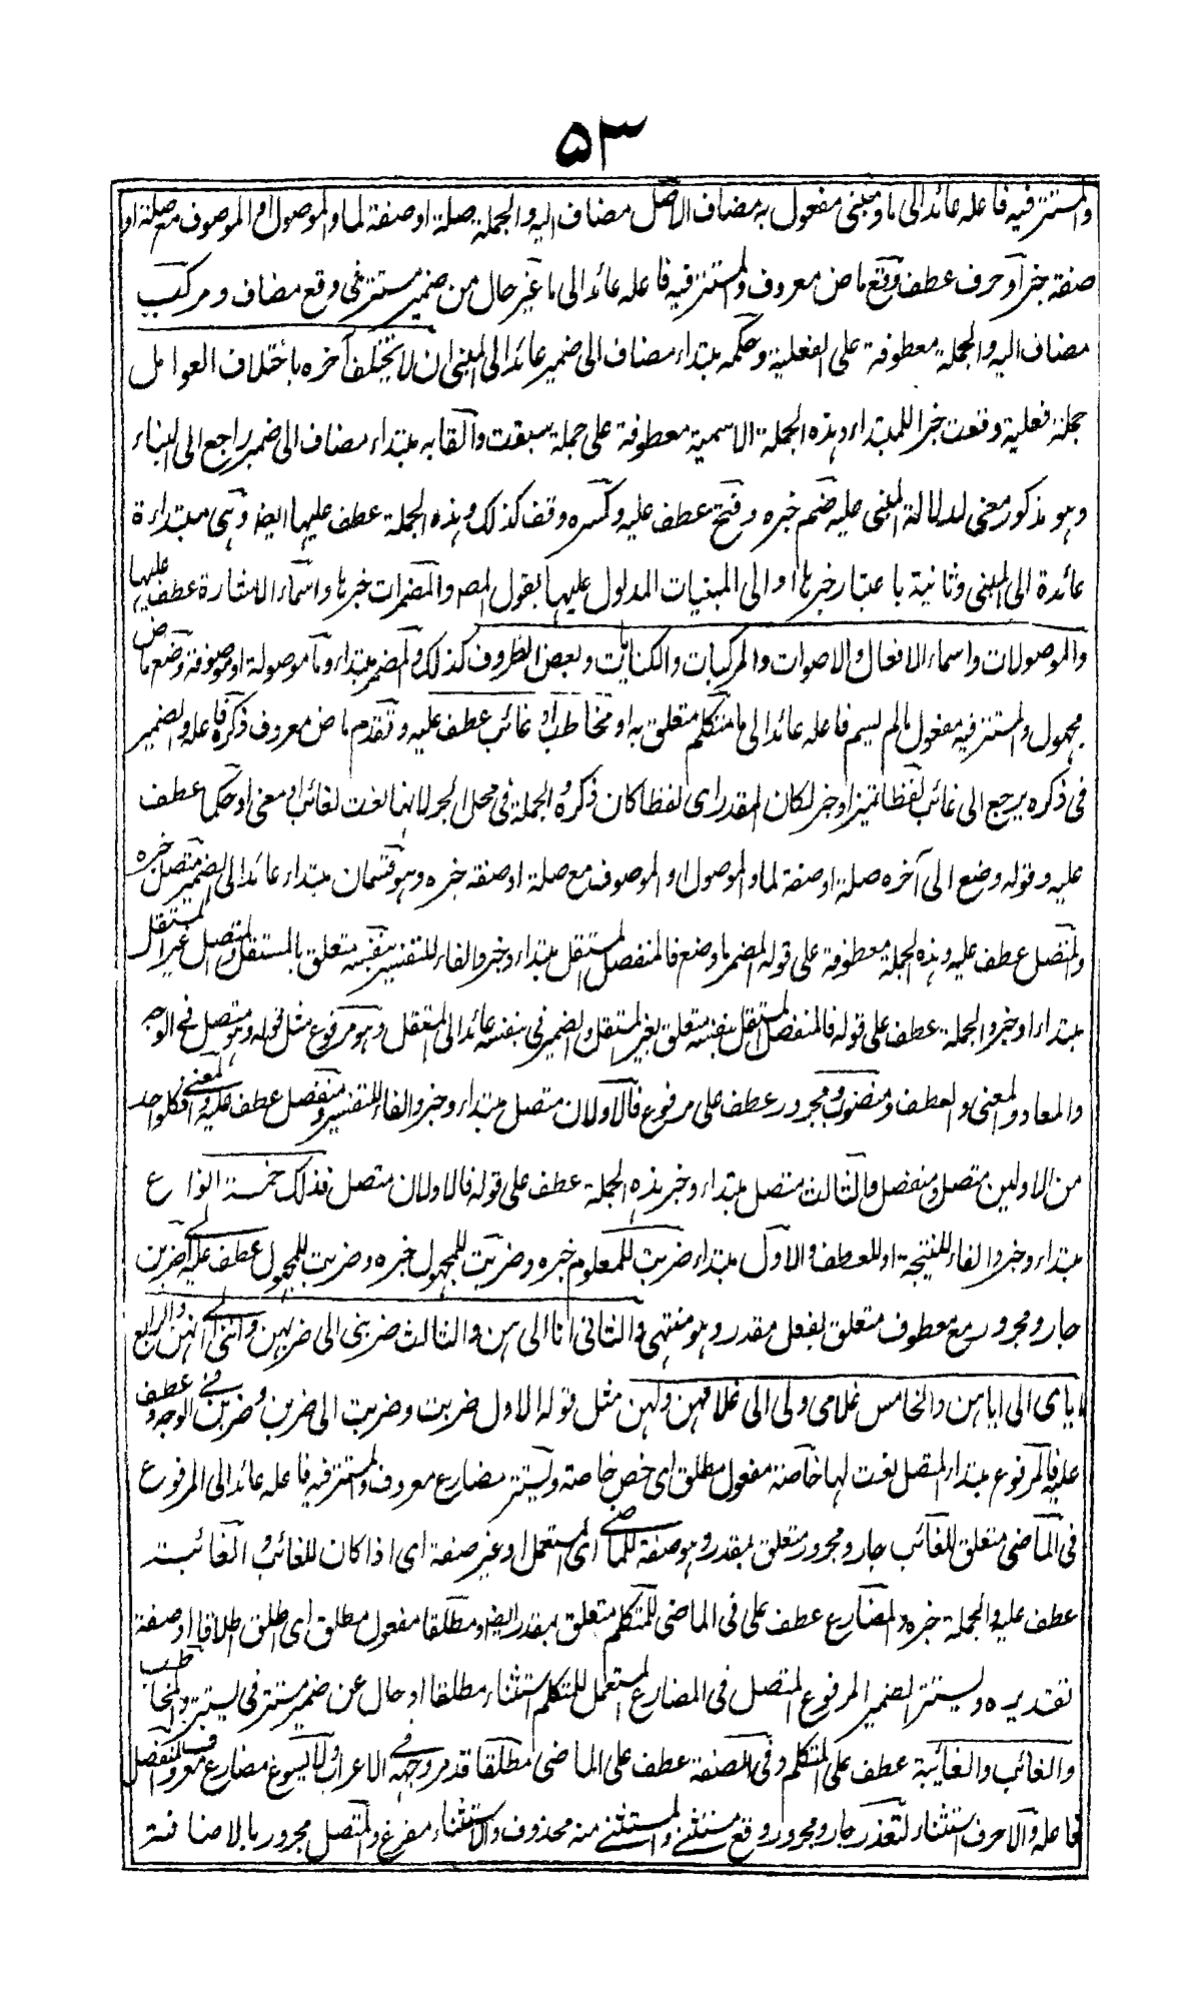 ٥٣
والمستتر فيه فاعله عائد الى ما ومبنى مفعول به مضاف الاصل مضاف اليه والجملة صلة او صفة لما والموصول او الموصوف مع صلة او
صفة خبر او حرف عطف وقع ماض معروف والمستتر فيه فاعله عائد الى ما غير حال من ضمير مستتر فى وقع مضاف ومركب
مضاف اليه والجملة معطوفة على الفعلية وحكمه مبتداء مضاف الى ضمير عائد الى المبنى ان لا يختلف آخره باختلاف العوامل
جملة فعلية وقعت خبرا للمبتداء وهذه الجملة الاسمية معطوفة على جملة سبقت والقابه مبتداء مضاف الى ضمير راجع الى البناء
وهو مذكور معنى لدلالة المبنى عليه ضم خبره وفتح عطف عليه وكسره وقف كذلك وهذه الجملة عطف عليها ايضا وهى مبتداءة
عائدة الى المبنى وثانية باعتبار خبرها او الى المبنيات المدلول عليها بقول المص والمضمرات خبرها واسماء الاشارة عطف عليها
والموصولات واسماء الافعال والاصوات والمركبات والكنايات وبعض الظروف كذلك والمضمر مبتداء وما موصولة او موصوفة وضع ماض
مجهول والمستتر فيه مفعول مالم يسم فاعله عائد الى ما متكلم متعلق به او مخاطب او غائب عطف عليه وتقدم ماض معروف ذكره فاعله والضمير
فى ذكره يرجع الى غائب لفظا تميز او خبر لكان المقدر اى لفظا كان ذكره والجملة فى محل الجر لانها لغت لغائب او معنى او حكما عطف
عليه وقوله وضع الى آخره صلة او صفة لما والموصول او الموصوف مع صلة او صفة خبره وهو قسمان مبتداء عائد الى الضمير متصل خبره
والمنفصل عطف عليه وهذه الجملة معطوفة على قوله المضمر ما وضع فالمنفصل المستقل مبتداء وخبر والفاء للتفسير بنفسه متعلق بالمستقل والمتصل غير المستقل
مبتداء او خبر والجملة عطف على قوله فالمنفصل المستقل بنفسه متعلق بغير المستقل والضمير فى بنفسه عائد الى المستقل وهو مرفوع مثل قوله وهو متصل فى الوجه
والمعاد والمعنى والعطف ومنصوب ومجرور عطف على مرفوع فالاولان متصل مبتداء وخبر والفاء للتفسير ومنفصل عطف عليه والمعنى فكلواحد
من الاولين متصل ومنفصل والثالث متصل مبتداء وخبر هذه الجملة عطف على قوله فالاولان متصل فذلك خمسة انواع
مبتداء وخبر والفاء للنتيجة او للعطف والاول مبتداء ضربت للمعلوم خبره وضربت للمجهول خبره وضربت للمجهول عطف عليه الى ضربن
جار ومجرور مع معطوف متعلق بفعل مقدر وهو منتهى والثانى انا الى هن والثالث ضربنى الى ضربهن واننى الى انهن والرابع
اياى الى اياهن والخامس غلامى ولى الى غلامهن ولهن مثل قوله الاول ضربت وضربت الى ضربن وضربن فى الوجه وعطف
عليه فالمرفوع مبتداء المتصل نعت لها خاصة مفعول مطلق اى خص خاصة ويستتر مضارع معروف والمستتر فيه فاعله عائد الى المرفوع
فى الماضى متعلق للغائب جار ومجرور متعلق بمقدر وهو صفة للماضى اى المستعمل او غير صفة اى اذا كان للغائب والغائبة
عطف عليه والجملة خبره والمضارع عطف على فى الماضى للمتكلم متعلق بمقدر ايضا ومطلقا مفعول مطلق اى اطلق اطلاقا او صفة
تقديره ويستتر الضمير المرفوع المتصل فى المضارع المستعمل للمتكلم استثناء مطلقا او حال عن ضمير مستتر فى يستتر والمخاطب
والغائب والغائبة عطف على المتكلم وفى الصفة عطف على الماضى مطلقا قد مر وجهه فى الاعراب ولا يسوغ مضارع معروف المنفصل
فاعله والا حرف استثناء لتعذر جار ومجرور وقع مستثنى والمستثنى منه محذوف والاستثناء مفرغ والمتصل مجرور بالاضافة